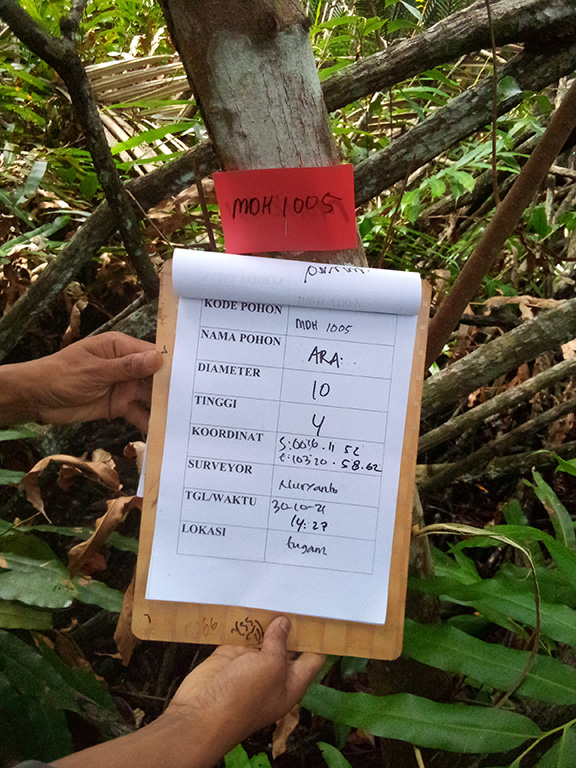 MDH 1005
KODE POHON MDH 1005
NAMA POHON ARA:
DIAMETER 10
TINGGI 4
KOORDINAT S:00:0.11 52
E:103:20.58.62
SURVEYOR Nuryanto
TGL/WAKTU 30-10-21
14:27
LOKASI tugam